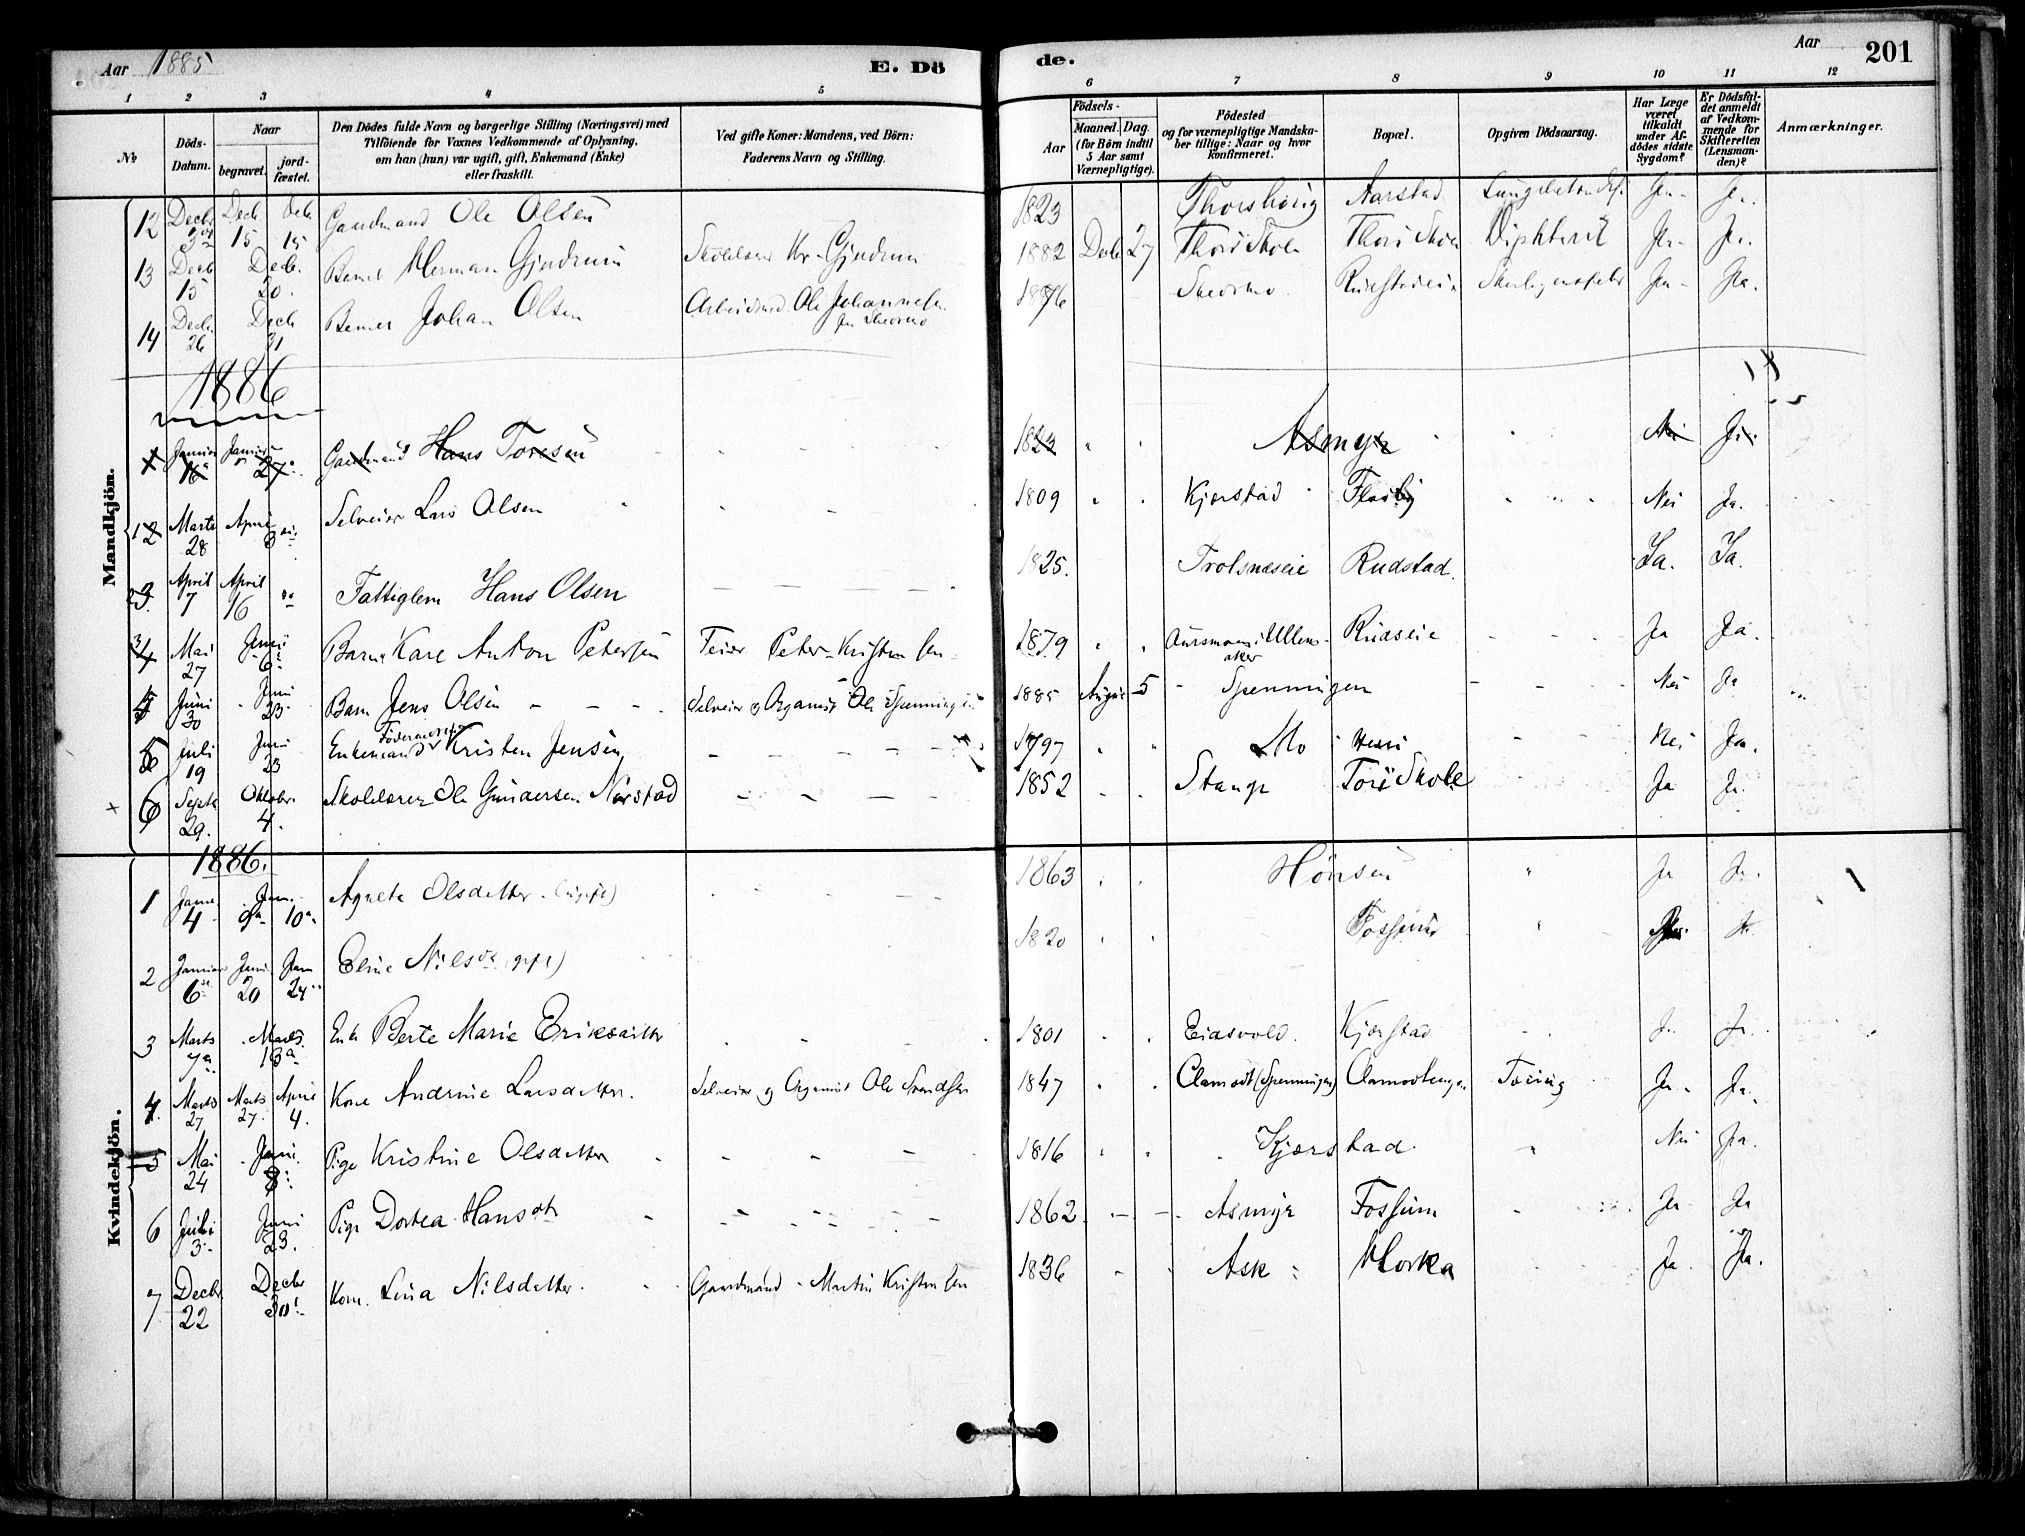 Aar 1885 E. Dö de. Aar 201
1 2 3 4 5 6 7 8 9 10 11 12
No
Döds-Datum.
Naar
begravet.
jord-fæstet.
Den Dödes fulde Navn og borgerlige Stilling (Næringsvei) med
Tilföiende for Voxnes Vedkommende af Oplysning,
om han (hun) var ugift, gift, Enkemand (Enke)
eller fraskilt.
Ved gifte Koner: Mandens, ved Börn:
Faderens Navn og Stilling.
Födsels-
Aar
Maaned. Dag.
(for Börn indtil
5 Aar samt
Værnepligtige).
Födested
og for værnepligtige Mandska-
ber tillige: Naar og hvor
konfirmeret.
Bopæl.
Opgiven Dödsaarsag.
Har Læge
været
tilkaldt
under Af-
dödes sidste
Sygdom?
Er Dödsfal-
det anmeldt
af Vedkom-
mende for
Skifteretten
(Lensman-
den)?
Anmærkninger.
Mandkjön.
12 Decb 15 15 Gaardmand Ole Olsen 1823 Aarstad Ja. Ja.
13 Decb 15 Decb. 20. Barnet Herman Gjødrum Skolelærer Kr. Gjødrum 1882 Decb 27 Thori Skole Thori Skole Diphterit Ja. Ja.
14 Decb. 26 Decb 31 Barnet Johan Olsen Arbeidsmd. Ole Johannesen 1876 Ja. Ja.
1886
1 Januar 16 Januar 27 Gaardmand Hans Toresen 1824 Asmyr Nei Ja.
12 Marts 28 April Selveier Lars Olsen 1809 Kjærstad Flasby Nei Ja.
23. April 7 April 16 Fattiglem Hans Olsen 1825. Trolsnæseie Rudstad. Ja. Ja.
34 Mai 27 Juni 6 Barn Kare Anton Petersen Feier Peter Kristensen 1879 Aursmoen i Ullensaker Rudseie Ja Ja.
4 Juni 30 Juni 23 Barn Jens Olsen Selveier og Organist Ole Spenningen 1885 August 5 Spenningen Nei Ja
5 Juli 19 Juni 23 Enkemand Föderaadsm Kristen Jensen 1797 Mo Nei Ja.
6 Septb 29. Oktobr. 4. Skolelærer Ole Gundersen Nørstad 1852 Stange Tori Skole Ja Ja.
Kvindekjön.
1886.
1 Januar 4 Jan. 9 10 Agnete Olsdatter (ugift) 1863 Hønsen Ja Ja.
2 Januar 6 Jan 20 Jan 24 Eline Nilsdr (gift) 1820 Fossum
3 Marts 7 Marts 13 Enke Berte Marie Eriksdatter 1801 Eidsvold. Kjærstad Ja. Ja.
4. Marts 27 Marts 27. April 4. Kone Andrine Larsdatter. Selveier og Organist Ole Svendsen 1847 Tæring Ja. Ja.
5 Mai 24 Juni 8 Pige Kristine Olsdatter 1816 Kjærstad. Nei Ja.
6 Juli 3 Juni 23. Pige Dortea Hansdtr 1862 Asmyr Fossum Ja Ja
7 Decbr 22 Decbr 30 Kone. Lina Nilsdatter. Gaardmand Martin Kristensen 1836 Ask Horka Ja Ja.